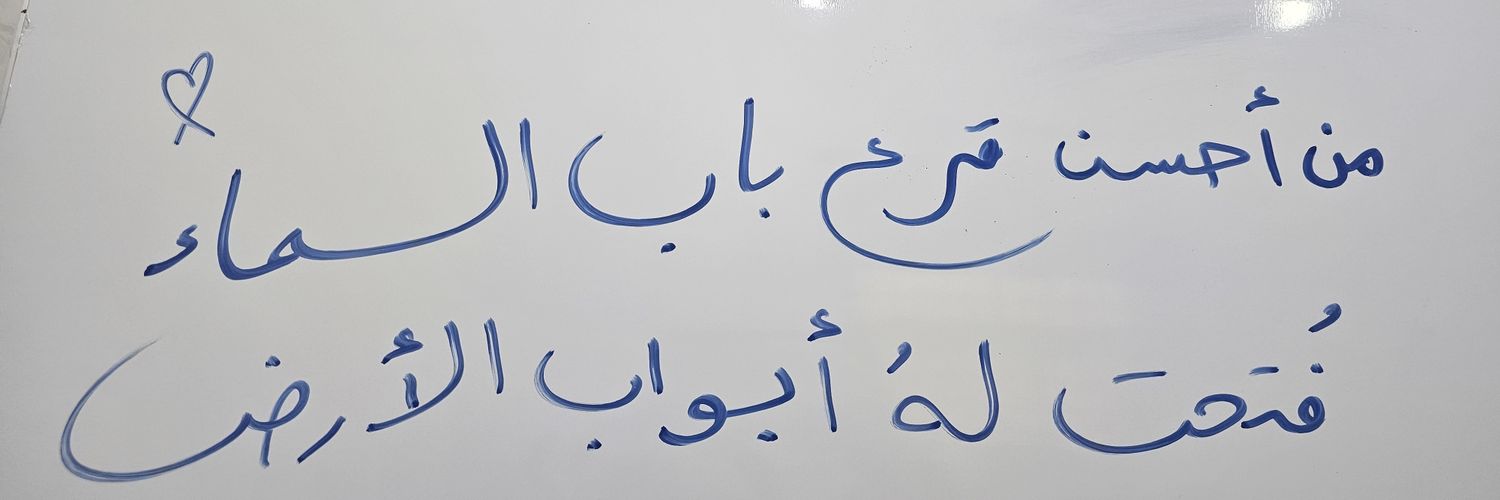 من أحسن قرع باب السماء
فُتحت لهُ أبواب الأرض